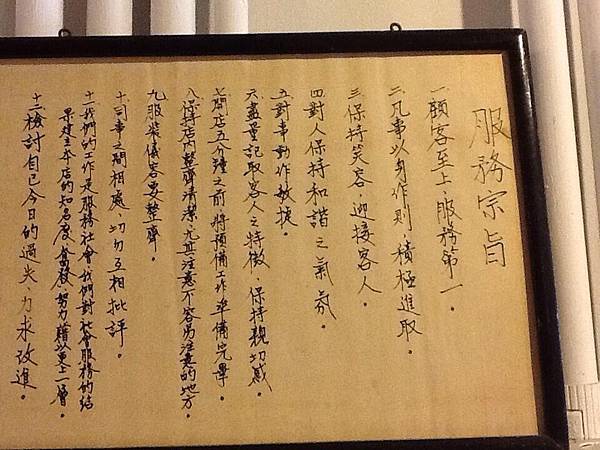 服務宗旨
一顧客至上、服務第一。
二凡事以身作則，積極進取。
三保持笑容，迎接客人。
四對人保持和諧之氣氛。
五對事動作敏捷。
六盡量記取客人之特徵，保持親切感。
七開店五分鐘之前將預備工作準備完畢。
八保持店內整齊清潔，尤其注意不容易注意的地方。
九服裝儀容要整齊。
十同事之間相處、切勿互相批評。
十一我們的工作是服務社會，我們對社會服務的結
果建立本店的知名度，奮發，努力藉以更上一層。
十二檢討自己今日的過失，力求改進。